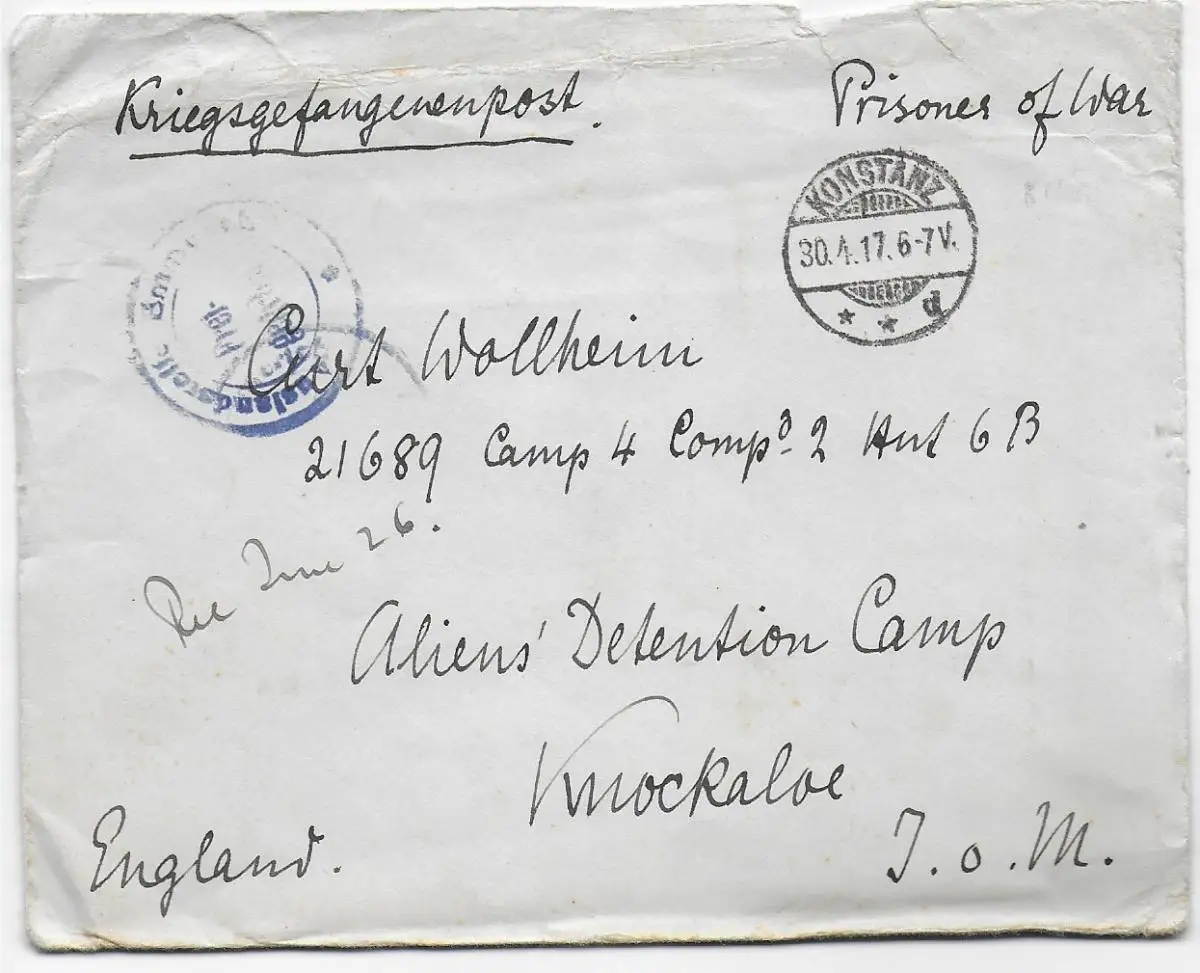 Kriegsgefangenenpost.
Prisoner of War
KONSTANZ
30.4.17.6-7V.
* * d
Auslandsstelle
Curt Wollheim
21689 Camp 4 Compᵈ. 2 Hut 6 B
Rec June 26.
Aliens' Detention Camp
Knockaloe
England.
I. o. M.